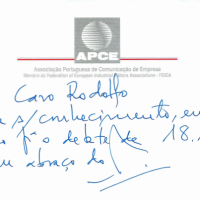 APCE
Associação Portuguesa de Comunicação de Empresa
Membro da Federation of European Industrial Editors Associations - FEIEA
Caro Rodolfo
s/conhecimento, en
o debate de 18.
abraço do